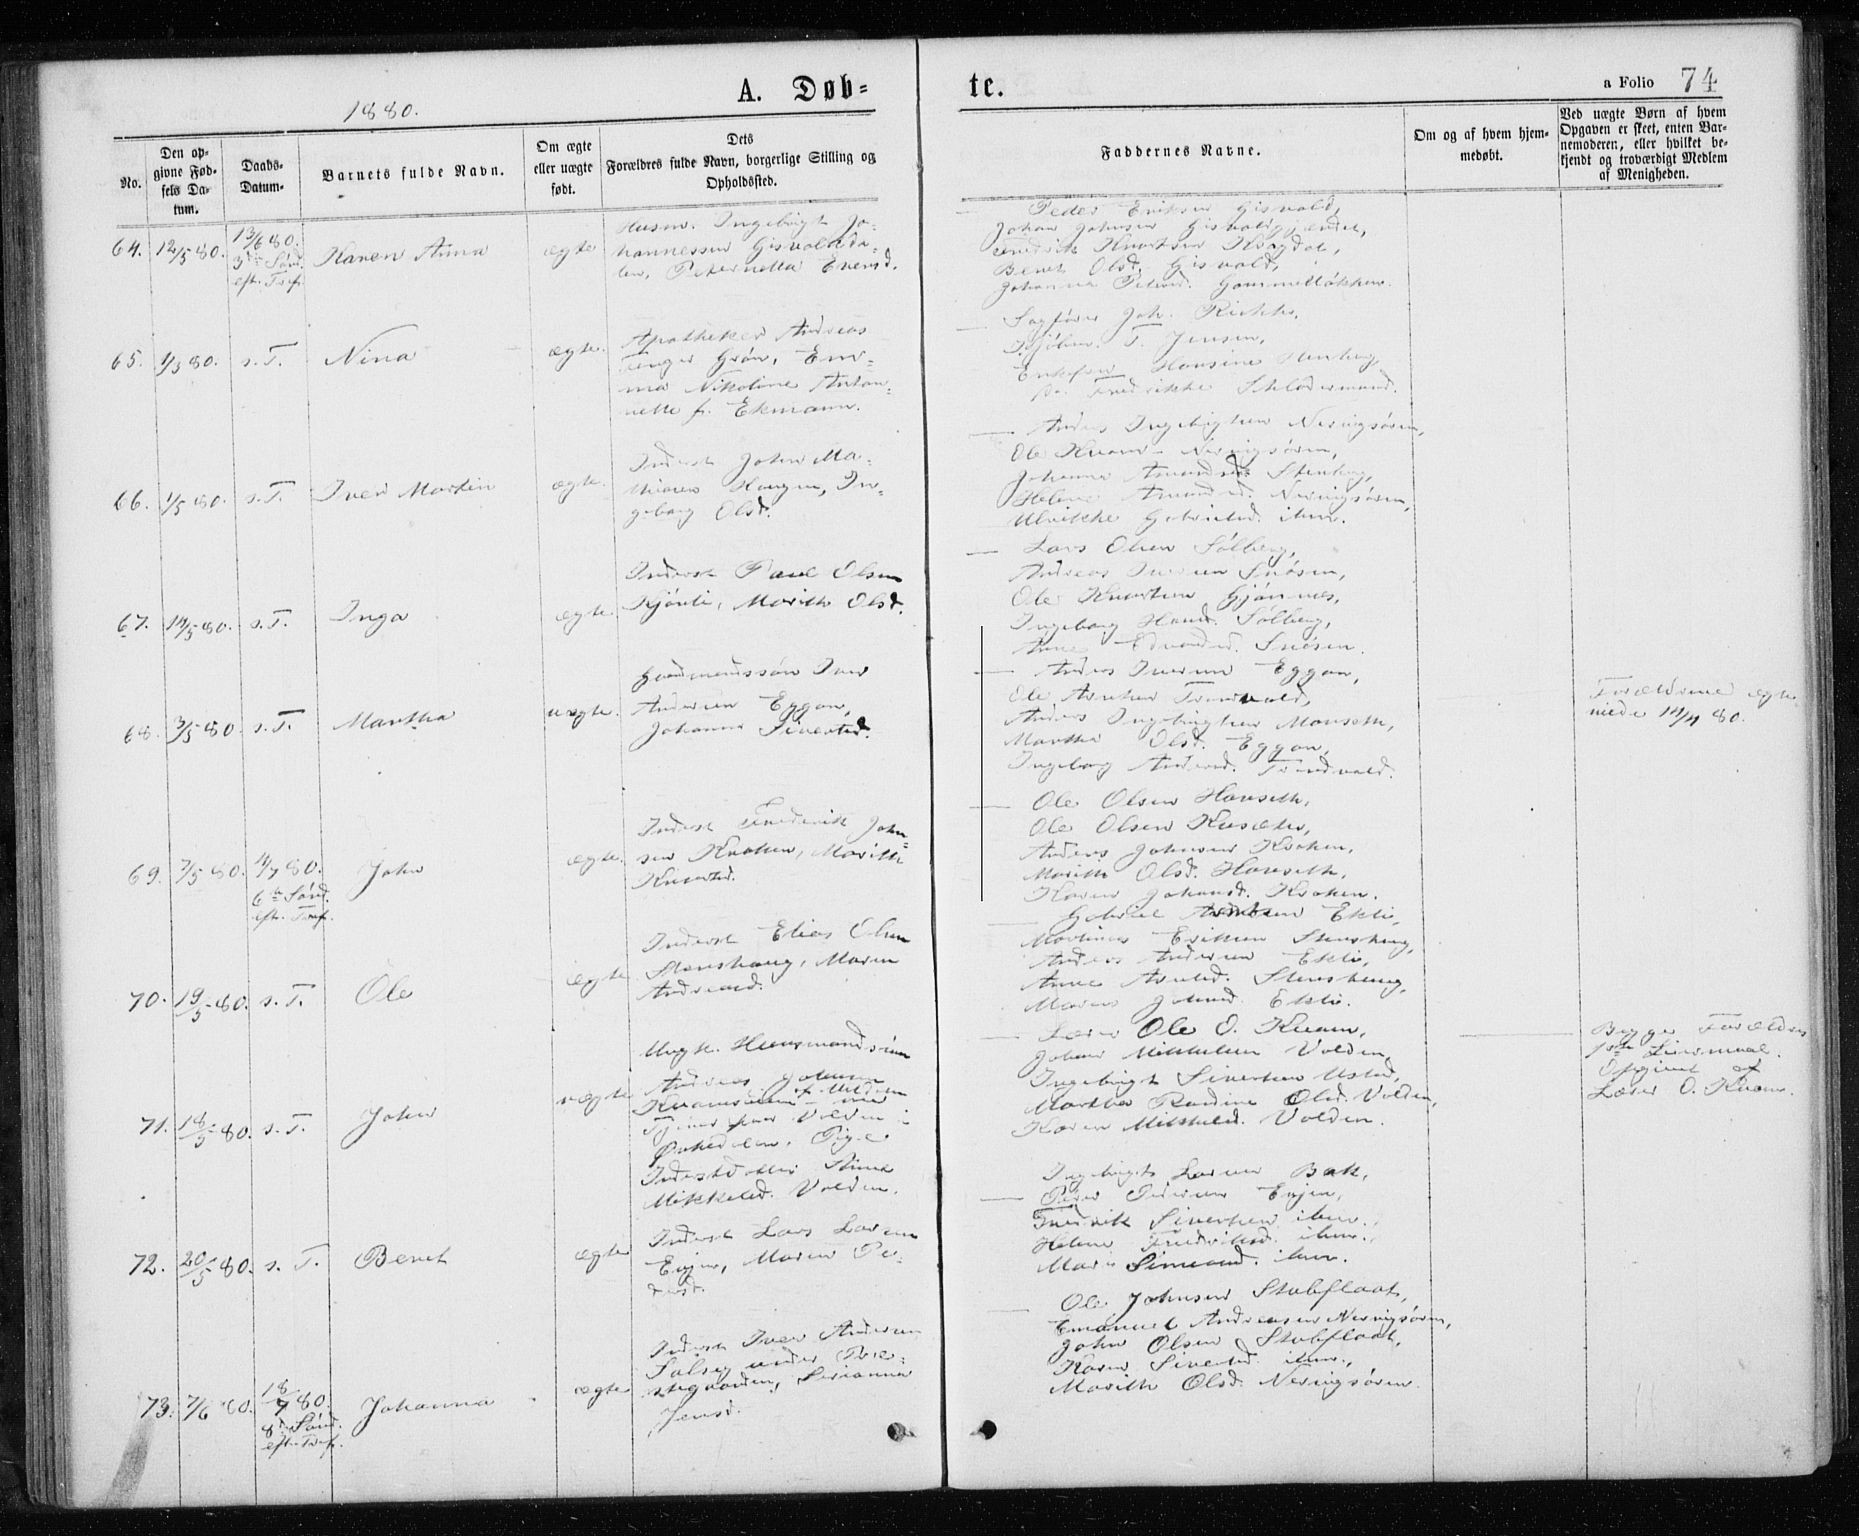 1880.
A. Døb=
te.
a Folio 74
No.
Den op-
givne Fød-
sels Da-
tum.
Daabs-
Datum.
Barnets fulde Navn.
Om ægte
eller uægte
født.
Dets
Forældres fulde Navn, borgerlige Stilling og
Opholdssted.
Faddernes Navne.
Om og af hvem hjem-
medøbt.
Ved uægte Børn af hvem
Opgaven er skeet, enten Bar-
nemoderen, eller hvilket be-
kjendt og troværdigt Medlem
af Menigheden.
64. 12/5 80. 13/6 80. 3die Sønd. eft. Tref. Karen Anna ægte
Husm. Ingebrigt Jo-
hannessen Gisvoldda-
len, Peternella Evensd.
Peder Eriksen Gisvold,
Johan Johnsen
Fredrik Knudtsen Krogdal,
Beret Olsd. Gisvold,
Johanna Pedersd. Gammelløkken.
65. 1/3 80. s. T. Nina ægte.
Apotheker Andreas
Grøn, Em-
ma Nikoline Anton-
nette f. Ekmann.
Sagfører Joh. Richter,
Kjøbm. T. Jensen,
Enkefru Hansine
Fredrikke
66. 1/5 80. s. T. Iver Martin ægte.
Inderst John Ma-
Haugen, In-
geborg Olsd.
Anders Ingebrigtsen Neringsøren,
Ole Kvam Neringsøren,
Johanna Amundsd. Stenberg,
Helene Amundsd. Neringsøren,
Ulrikke Gabrielsd. ibm.
67. 14/5 80. s. T. Inga ægte.
Inderst Paul Olsen
Kjønli, Marith Olsd.
Lars Olsen Sølberg,
Andreas Iversen Snøsen,
Ole Knudtsen Gjønnes,
Ingeborg Hansd. Sølberg,
Anne Edvardsd. Snøsen.
68. 3/5 80. s. T. Martha uægte.
Gaardmandssøn Iver
Andersen Eggan,
Johanna Sivertsd.
Anders Iversen Eggan,
Ole Arntsen Trondvold,
Anders Ingebrigtsen Monseth,
Martha Olsd. Eggan,
Ingeborg Andersd. Trondvold.
Forældrene ægte-
viede 14/4 80.
69. 7/5 80. 4/7 80. 6te Sønd. eft. Tref. John ægte.
Inderst Frederik John-
sen Kroken, Marith
Knudtsd.
Ole Olsen Hanseth,
Ole Olsen
Anders Johnsen Kroken,
Marith Olsd. Hanseth,
Karen Johansd. Kroken.
70. 19/5 80. s. T. Ole ægte
Inderst Elias Olsen
Stenshaug, Maren
Andreasd.
Gabriel Arntsen Ekli,
Martinus Eriksen Stenshaug,
Anders Andersen Ekli,
Anne Arntsd. Stenshaug,
Maren Johnsd. Ekli.
71. 18/5 80. s. T. John uægte
Ungk. Huusmandssøn
Andreas Johnsen
Volden i
Orkedalen, Pige
Inderstdatter Anna
Mikkelsd. Volden.
Lærer Ole O. Kvam,
Johan Mikkelsen Volden,
Ingebrigt Sivertsen Ustad,
Martha Randine Olsd. Volden,
Karen Mikkelsd. Volden.
Begge Forældres
1ste Leiermaal.
Opgivet af
Lærer O. Kvam.
72. 20/5 80. s. T. Beret ægte
Inderst Lars Larsen
Evjen, Maren Pe-
dersd.
Ingebrigt Larsen Bak,
Peder Pedersen Evjen,
Fredrik Sivertsen ibm.,
Helene Fredriksd. ibm.,
Marie Simonsd. ibm.
73. 7/6 80. 18/7 80. 8de Sønd. eft. Tref. Johanna ægte
Inderst Iver Andersen
under Præ-
stegaarden, Serianna
Jensd.
Ole Johnsen Stubflaat,
Emanuel Andreasen Neringsøren,
John Olsen Stubflaat,
Karen Sivertsd. ibm.,
Marith Olsd. Neringsøren.